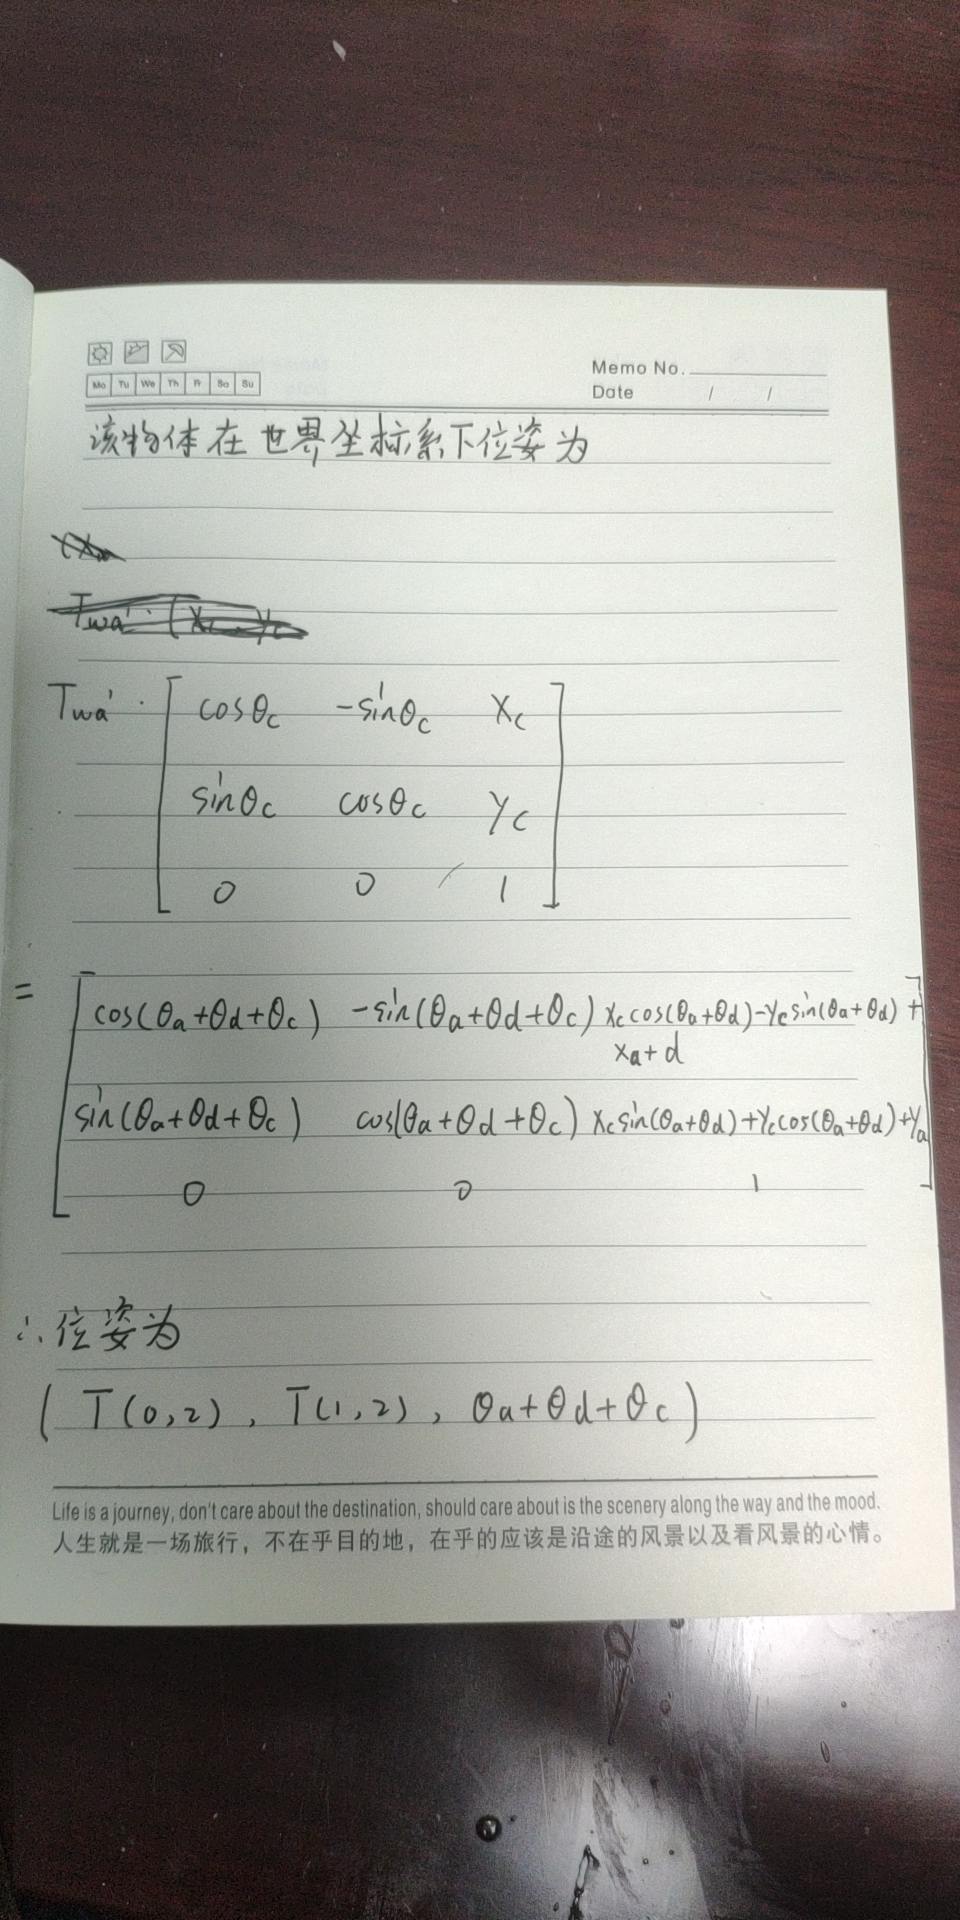 Mo Tu We Th Fr Sa Su
Memo No.
Date / /
该物体在世界坐标系下位姿为
Twa' · [ cosθc -sinθc xc
sinθc cosθc yc
0 0 1 ]
= [ cos(θa+θd+θc) -sin(θa+θd+θc) xc cos(θa+θd)-yc sin(θa+θd)+
xa+d
sin(θa+θd+θc) cos(θa+θd+θc) xc sin(θa+θd)+yc cos(θa+θd)+ya
0 0 1 ]
∴ 位姿为
( T(0,2), T(1,2), θa+θd+θc )
Life is a journey, don't care about the destination, should care about is the scenery along the way and the mood.
人生就是一场旅行，不在乎目的地，在乎的应该是沿途的风景以及看风景的心情。